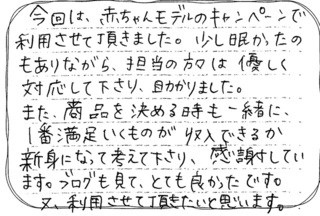 今回は、赤ちゃんモデルのキャンペーンで
利用させて頂きました。少し眠かったの
もありながら、担当の方々は優しく
対応して下さり、助かりました。
また、商品を決める時も一緒に、
1番満足いくものが収入できるか
新身になって考えて下さり、感謝してい
ます。ブログも見て、とても良かったです。
又、利用させて頂きたいと思います。